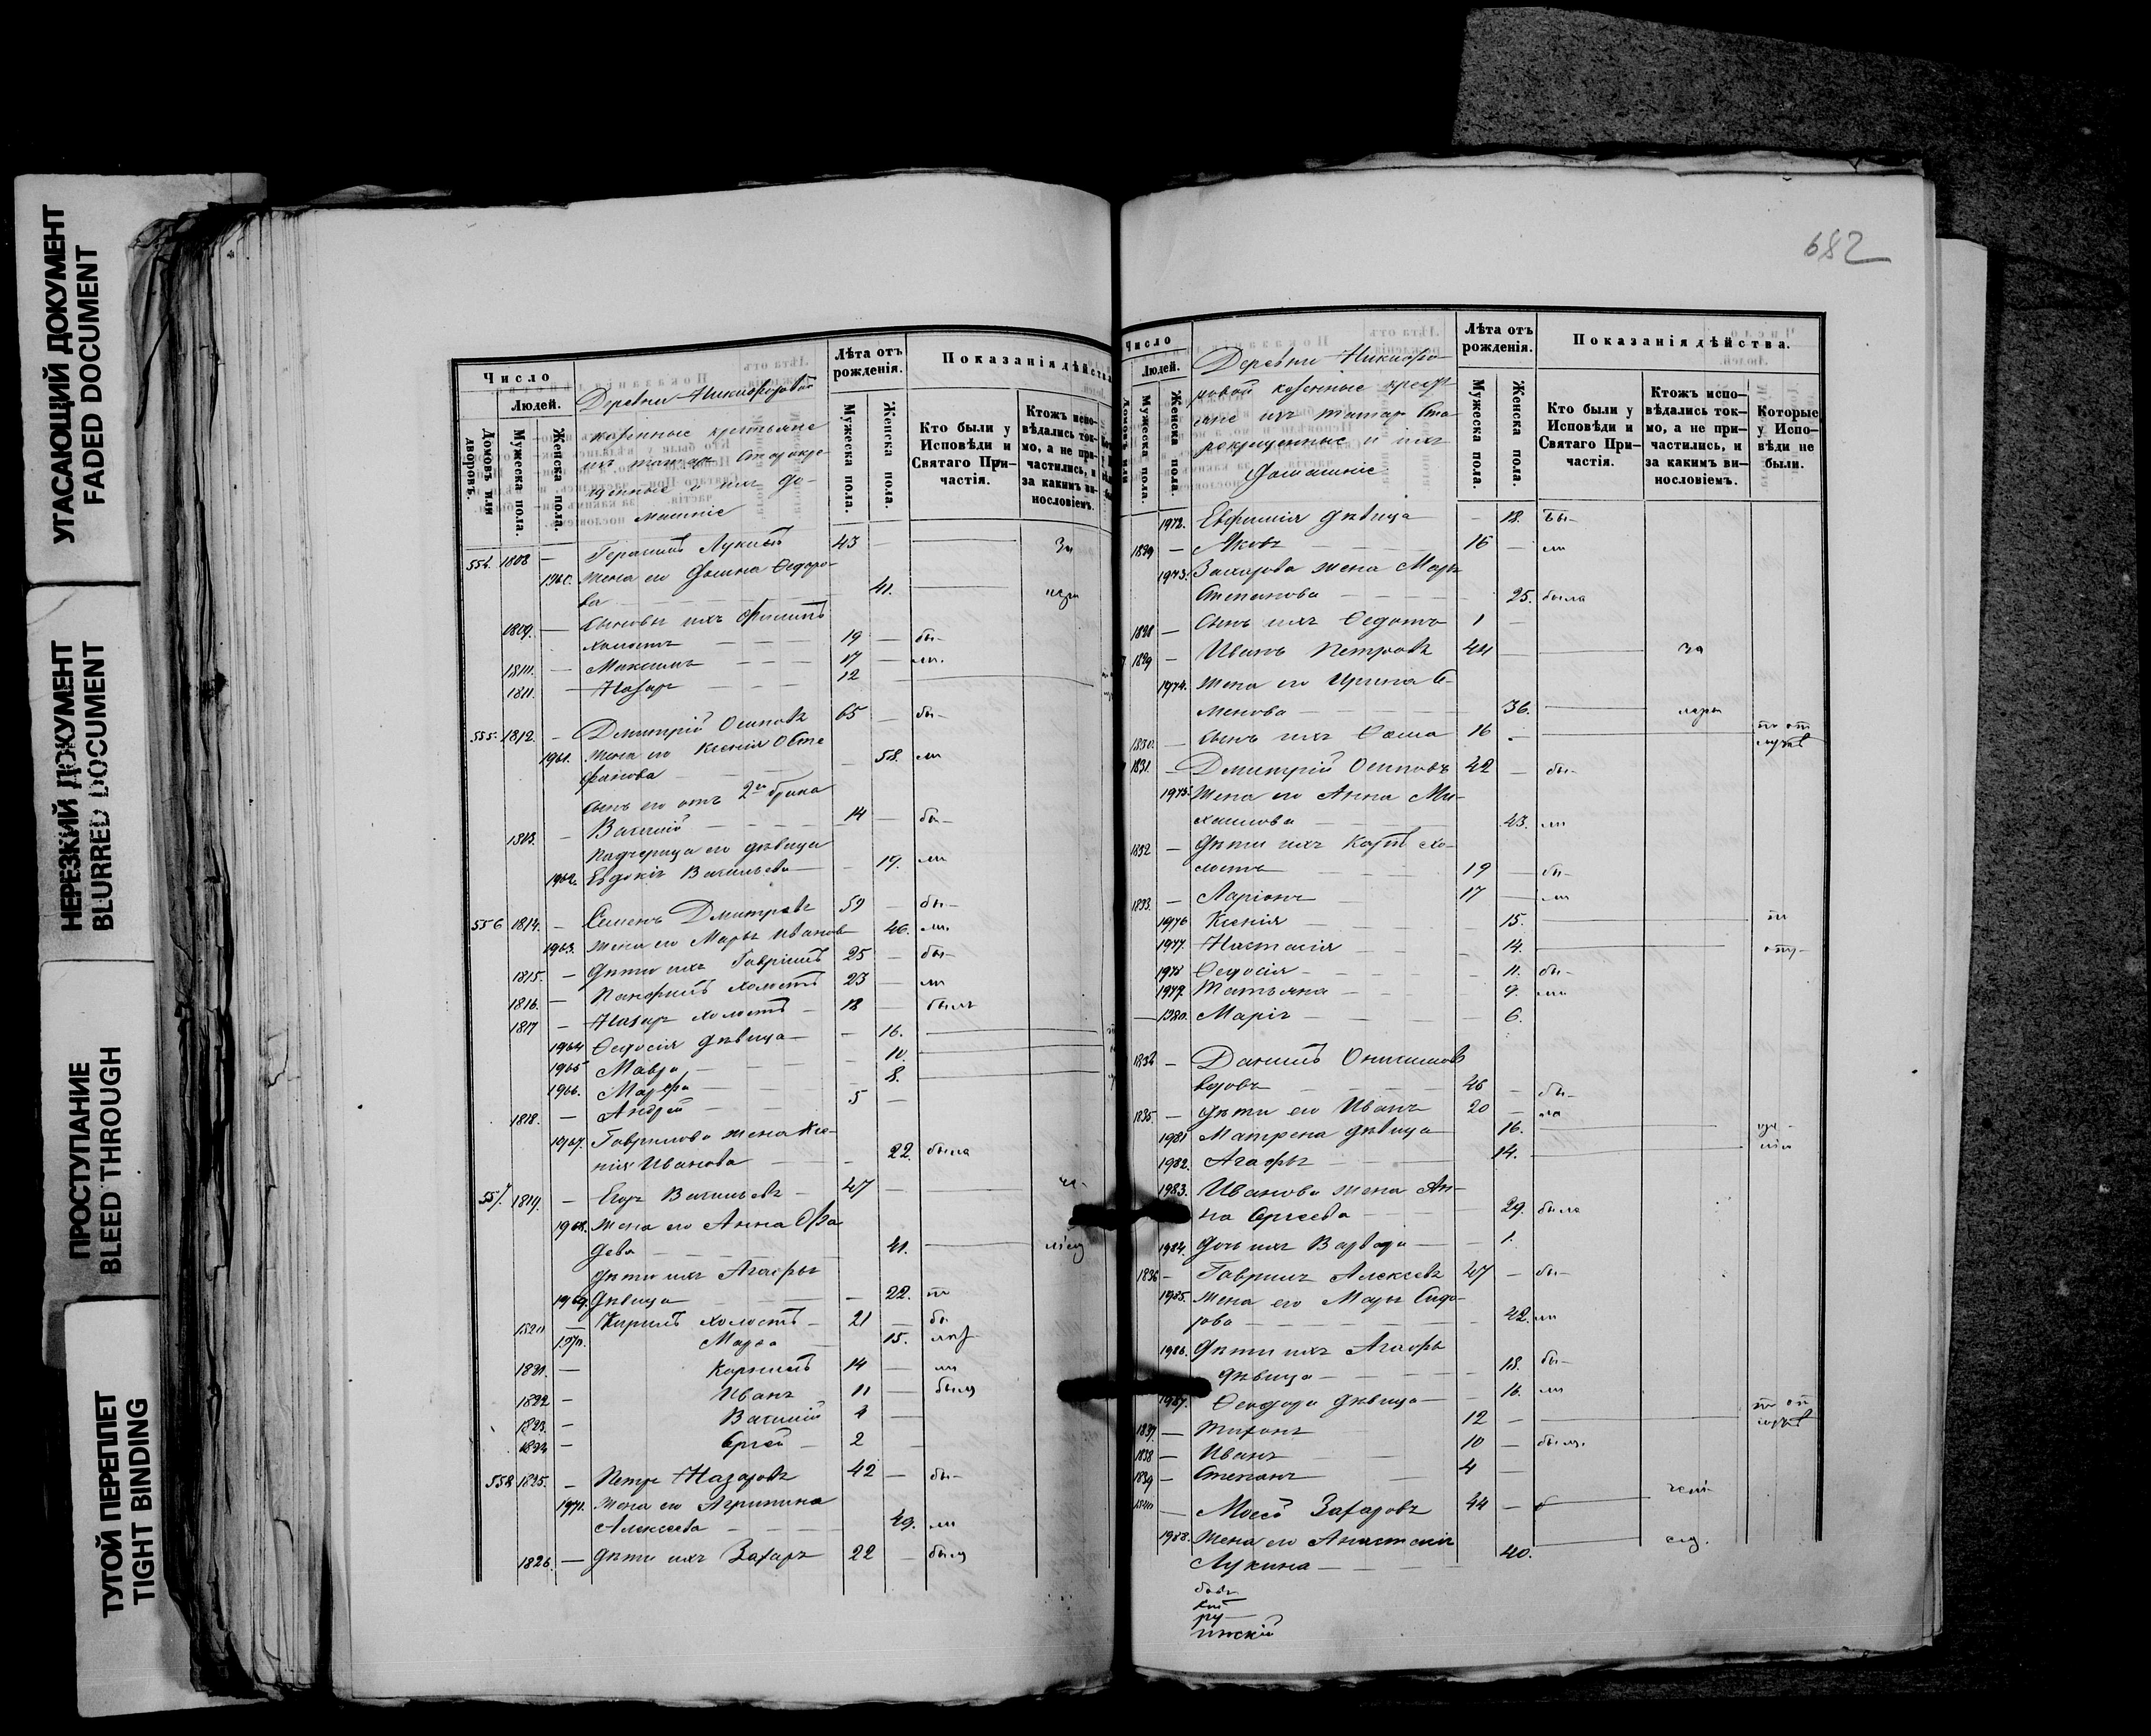 УГАСАЮЩИЙ ДОКУМЕНТ
FADED DOCUMENT
НЕРЕЗКИЙ ДОКУМЕНТ
BLURRED DOCUMENT
ПРОСТУПАНИЕ
BLEED THROUGH
ТУГОЙ ПЕРЕПЛЕТ
TIGHT BINDING
Число
Людей.
Домовъ или дворовъ.
Мужеска пола.
Женска пола.
Деревни Никифоровой
казенные крестьяне
изъ татаръ старокре-
щенные и ихъ до-
машніе
Лѣта отъ рожденія.
Мужеска пола.
Женска пола.
Показанія дѣйства
Кто были у Исповѣди и Святаго При-частія.
Ктожъ испо-вѣдались ток-мо, а не при-частились, и за какимъ ви-нословіемъ.
554. 1808 — Герасимъ Лукинъ 43 — за
1960. жена его Ѳедоро-
ва 41.
1809. — Сыновья ихъ Филипъ
холостъ 19 — бы-
1810. — Максимъ 17 — ли.
1811. — Назаръ 12
555. 1812. — Димитрій Осиповъ 65 — бы-
1961. жена его Ксенія Сте
фанова 58. ли
сынъ его отъ 2го брака
1813. — Василій 14 — бы-
Падчерица его дѣвица
1962. Евдокія Васильева 19. ли
556 1814. — Семенъ Дмитревъ 59 — бы-
1963. жена его Марья Иванов 46. ли.
1815. — дѣти ихъ Гавріилъ 25 — бы-
1816. — Панфилъ холостъ 23 — ли
1817 — Назаръ холостъ 18 — былъ
1964 Ѳедосія дѣвица 16.
1965 Мавра 10.
1966. Марѳа 8.
1818. — Андрей 5 —
1967. Гаврилова жена Ксе-
нія Иванова 22. была
557. 1819. — Егоръ Васильевъ 47 —
1968. жена его Анна Ѳа
деева 41.
дѣти ихъ Агаѳья
1969. дѣвица 22.
1820 — Кирилъ холостъ 21 — бы
1970. Марѳа 15.
1821. — Корнилъ 14 — ли
1822 — Иванъ 11 — былъ
1823. — Василій 4 —
1824 — Сергѣй 2
558 1825. — Петръ Назаровъ 42 — бы-
1971. жена его Агрипина
Алексѣева 49. ли
1826. — дѣти ихъ Захаръ 22 — былъ
682
Число
Людей.
Мужеска пола.
Женска пола.
Деревни Никифо-
ровой казенные кресть
яне изъ татаръ Ста-
рокрещенные и ихъ
Домашніе
Лѣта отъ рожденія.
Мужеска пола.
Женска пола.
Показанія дѣйства.
Кто были у Исповѣди и Святаго При-частія.
Ктожъ испо-вѣдались ток-мо, а не при-частились, и за какимъ ви-нословіемъ.
Которые у Испо-вѣди не были.
1972. Евфимія дѣвица — 18. Бы-
— Яковъ 16 — ли
1973. Захарова жена Марья
Степанова 25. была
1828 — Сынъ ихъ Ѳедотъ 1 —
1829 — Иванъ Петровъ 44 — за
1974. Жена его Ирина Се-
менова 36.
1830. — сынъ ихъ Ѳома 16 —
1831. — Дмитрій Осиповъ 42 — бы-
1975. Жена его Анна Ми-
хаилова 43. ли
1832 — Дѣти ихъ Карпъ хо-
лостъ 19 — бы-
1833. — Ларіонъ 17 — ли
1976 Ксенія 15.
1977. Настасія 14.
1978 Ѳедосія 11. бы-
1979. Татьяна 9. ли
1980. Марія 6.
1834 — Данилъ Онисимов
вдовъ 46 — бы-
1835. — Дѣти его Иванъ 20 — ла
1981 Матрена дѣвица 16.
1982. Агаѳья 14.
1983. Иванова жена Ан-
на Сергѣева 29. была
1984. Дочь ихъ Варвара 1.
1836 — Гаврилъ Алексѣевъ 47 — бы-
1985. Жена его Марья Сидо-
рова 42. ли
1986. Дѣти ихъ Агаѳья
дѣвица 18. бы-
1987. Ѳеодора дѣвица 16. ли
1837. — Тихонъ 12 —
1838 — Иванъ 10 — былъ.
1839 — Степанъ 4 —
1840 — Моѵсей Захаровъ 44 —
1988. Жена его Анастасія
Лукина 40.